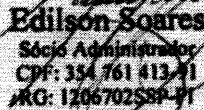 Edilson Soares
Sócio Administrador
CPF: 354 761 413-91
RG: 1206702SSP-PI